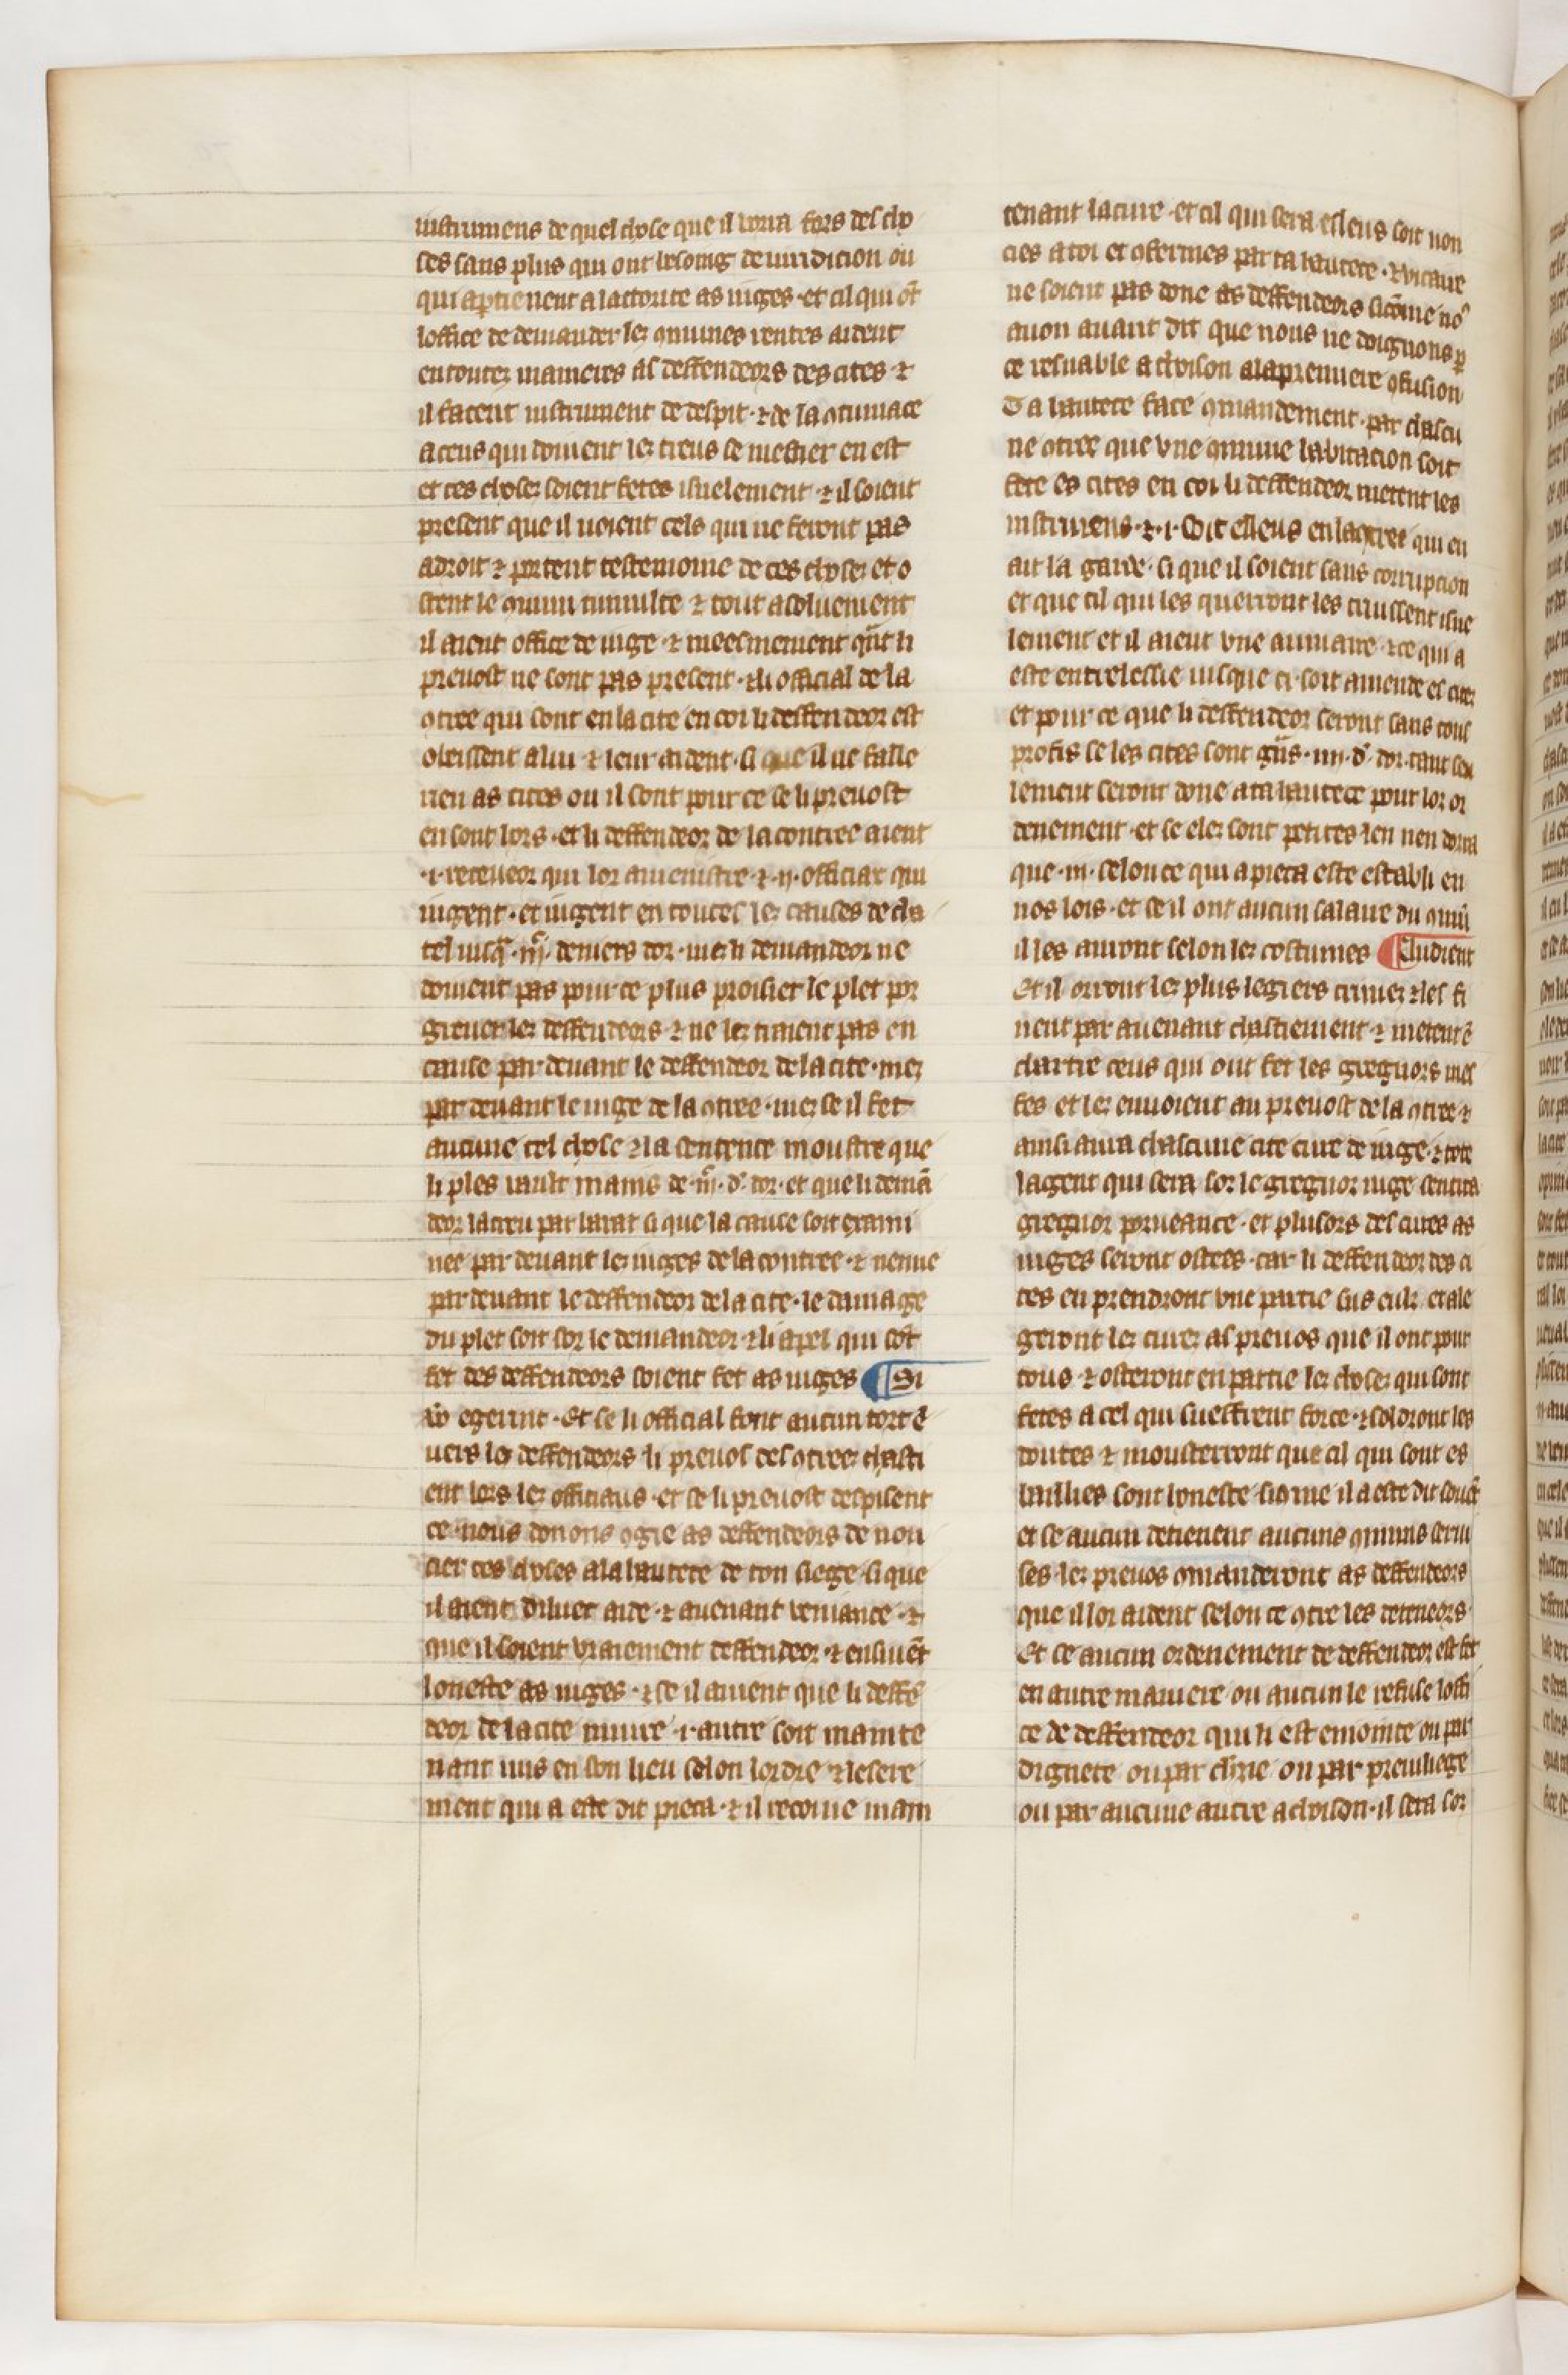 instrumens de quel chose que il uora fors des cho
ses sans plus qui ont besoing de iuridicion ou
qui aptienent a lactorite as iuges · et cil qui ōt
loffice de demander les ꝯmunes rentes aident
en toutes manieres as deffendeors des cites ⁊
il facent instrument de despit · ⁊ de la ꝯtumace
a ceus qui doiuent les treus se mestier en est
et ces choses soient fetes isnelement · ⁊ il soient
present que il uoient cels qui ne feront pas
a droit ⁊ portent testemoine de ces choses et o
stent le ꝯmun tumulte ⁊ tout asoluement
il aient office de iuge · ⁊ meesmement qūt li
preuost ne sont pas present · ⁊ li official de la
ꝯtree qui sont en la cite en coi li deffendeor est
obeissent a lui ⁊ leur aident · si que il ne faille
rien as cites ou il sont pour ce se li preuost
en sont hors · et li deffendeor de la contree aient
·i· receueor qui lor amenistre · ⁊ ·ii· officiax qui
iugent · et iugent en toutes les causes de cha
tel iusq̄ · iijc · deniers dor · mes li demandeor ne
doiuent pas pour ce plus proisier le plet por
greuer les deffendeors · ⁊ ne les traient pas en
cause par deuant le deffendeor de la cite · mes
par deuant le iuge de la ꝯtree · mes se il fet
aucune tel chose ⁊ la sentence moustre que
li ples uault mains de · iijc · d' · dor · et que li demā
deor la creu par barat si que la cause soit exami
nee par deuant les iuges de la contree · ⁊ nenne
par deuant le deffendeor de la cite · le damage
du plet soit sor le demandeor ⁊ li apel qui sōt
fet des deffendeors soient fet as iuges ¶ Si
ūo egerint · Et se li official font aucun tort ē
uers les deffendeors li preuos des ꝯtrees chasti
ent lors les officiaus · et se li preuost despisent
ce · nous donons ꝯgie as deffendeors de non
cier ces choses a la hautece de ton siege · si que
il aient diluec aide · ⁊ auenant veniance · ⁊
que il soient vraiement deffendeor · ⁊ ensiuēt
loneste as iuges · ⁊ se il auient que li deffē
deor de la cite muire · i · autre soit mainte
nant mis en son lieu selon lordre ⁊ le sere
ment qui a este dit pieca · ⁊ il recoiue main
tenant la cure · et cil qui sera esleus soit non
cies a toi et ꝯfermes par ta hautece · ⁊ vicaire
ne soient pas done as deffendeors si cōme no⁹
auon auant dit que nous ne doignons p
ce resnable achoison a la premiere ꝯfusion
Ta hautece face ꝯmandement · par chascu
ne ꝯtree que vne ꝯmune habitacion soit
fete es cites en coi li deffendeor metent les
instrumens · ⁊ · i · soit esleus en la ꝯtree qui en
ait la garde · si que il soient sans corrupcion
et que cil qui les querront les truissent isne
lement et il aient vne aumaire · ⁊ ce qui a
este entrelessie iusque ci · soit amende es cites
et pour ce que li deffendeor seront sans tous
profis se les cites sont grās · iiij · d' · dor · tant seu
lement seront done a ta hautece pour lor or
denement · et se eles sont petites len nen dorra
que · iii · selon ce qui a pieca este establi en
nos lois · et se il ont aucun salaire du ꝯmū
il les auront selon les costumes ¶ Audient
Et il orront les plus legiers crimes ⁊ les fi
nent par auenant chastiement · ⁊ metent ē
chartre ceus qui ont fet les gregnors mes
fes et les enuoient au preuost de la ꝯtree · ⁊
ainsi aura chascune cite cure de iuge · ⁊ tote
la gent qui sera sor le gregnor iuge sentira
gregnor porueance · et plusors des cures as
iuges seront ostees · car li deffendeor des ci
tes en prendront vne partie sus euls et ale
geront les cures as preuos que il ont pour
tous · ⁊ osteront en partie les choses qui sont
fetes a cel qui sueffrent force · ⁊ soldront les
doutes ⁊ mousterront que cil qui sont es
baillies sont honeste · si ꝯme il a este dit souēt
et se aucun detienent aucuns ꝯmuns serui
ses · les preuos ꝯmanderont as deffendeors
que il lor aident selon ce ꝯtre les deteneors ·
Et se aucun ordenement de deffendeor est fet
en autre maniere ou aucun le refuse loffi
ce de deffendeor qui li est eniointe ou par
dignete · ou par cheualerie ou par preuiliege
ou par aucune autre achoison · il sera sor